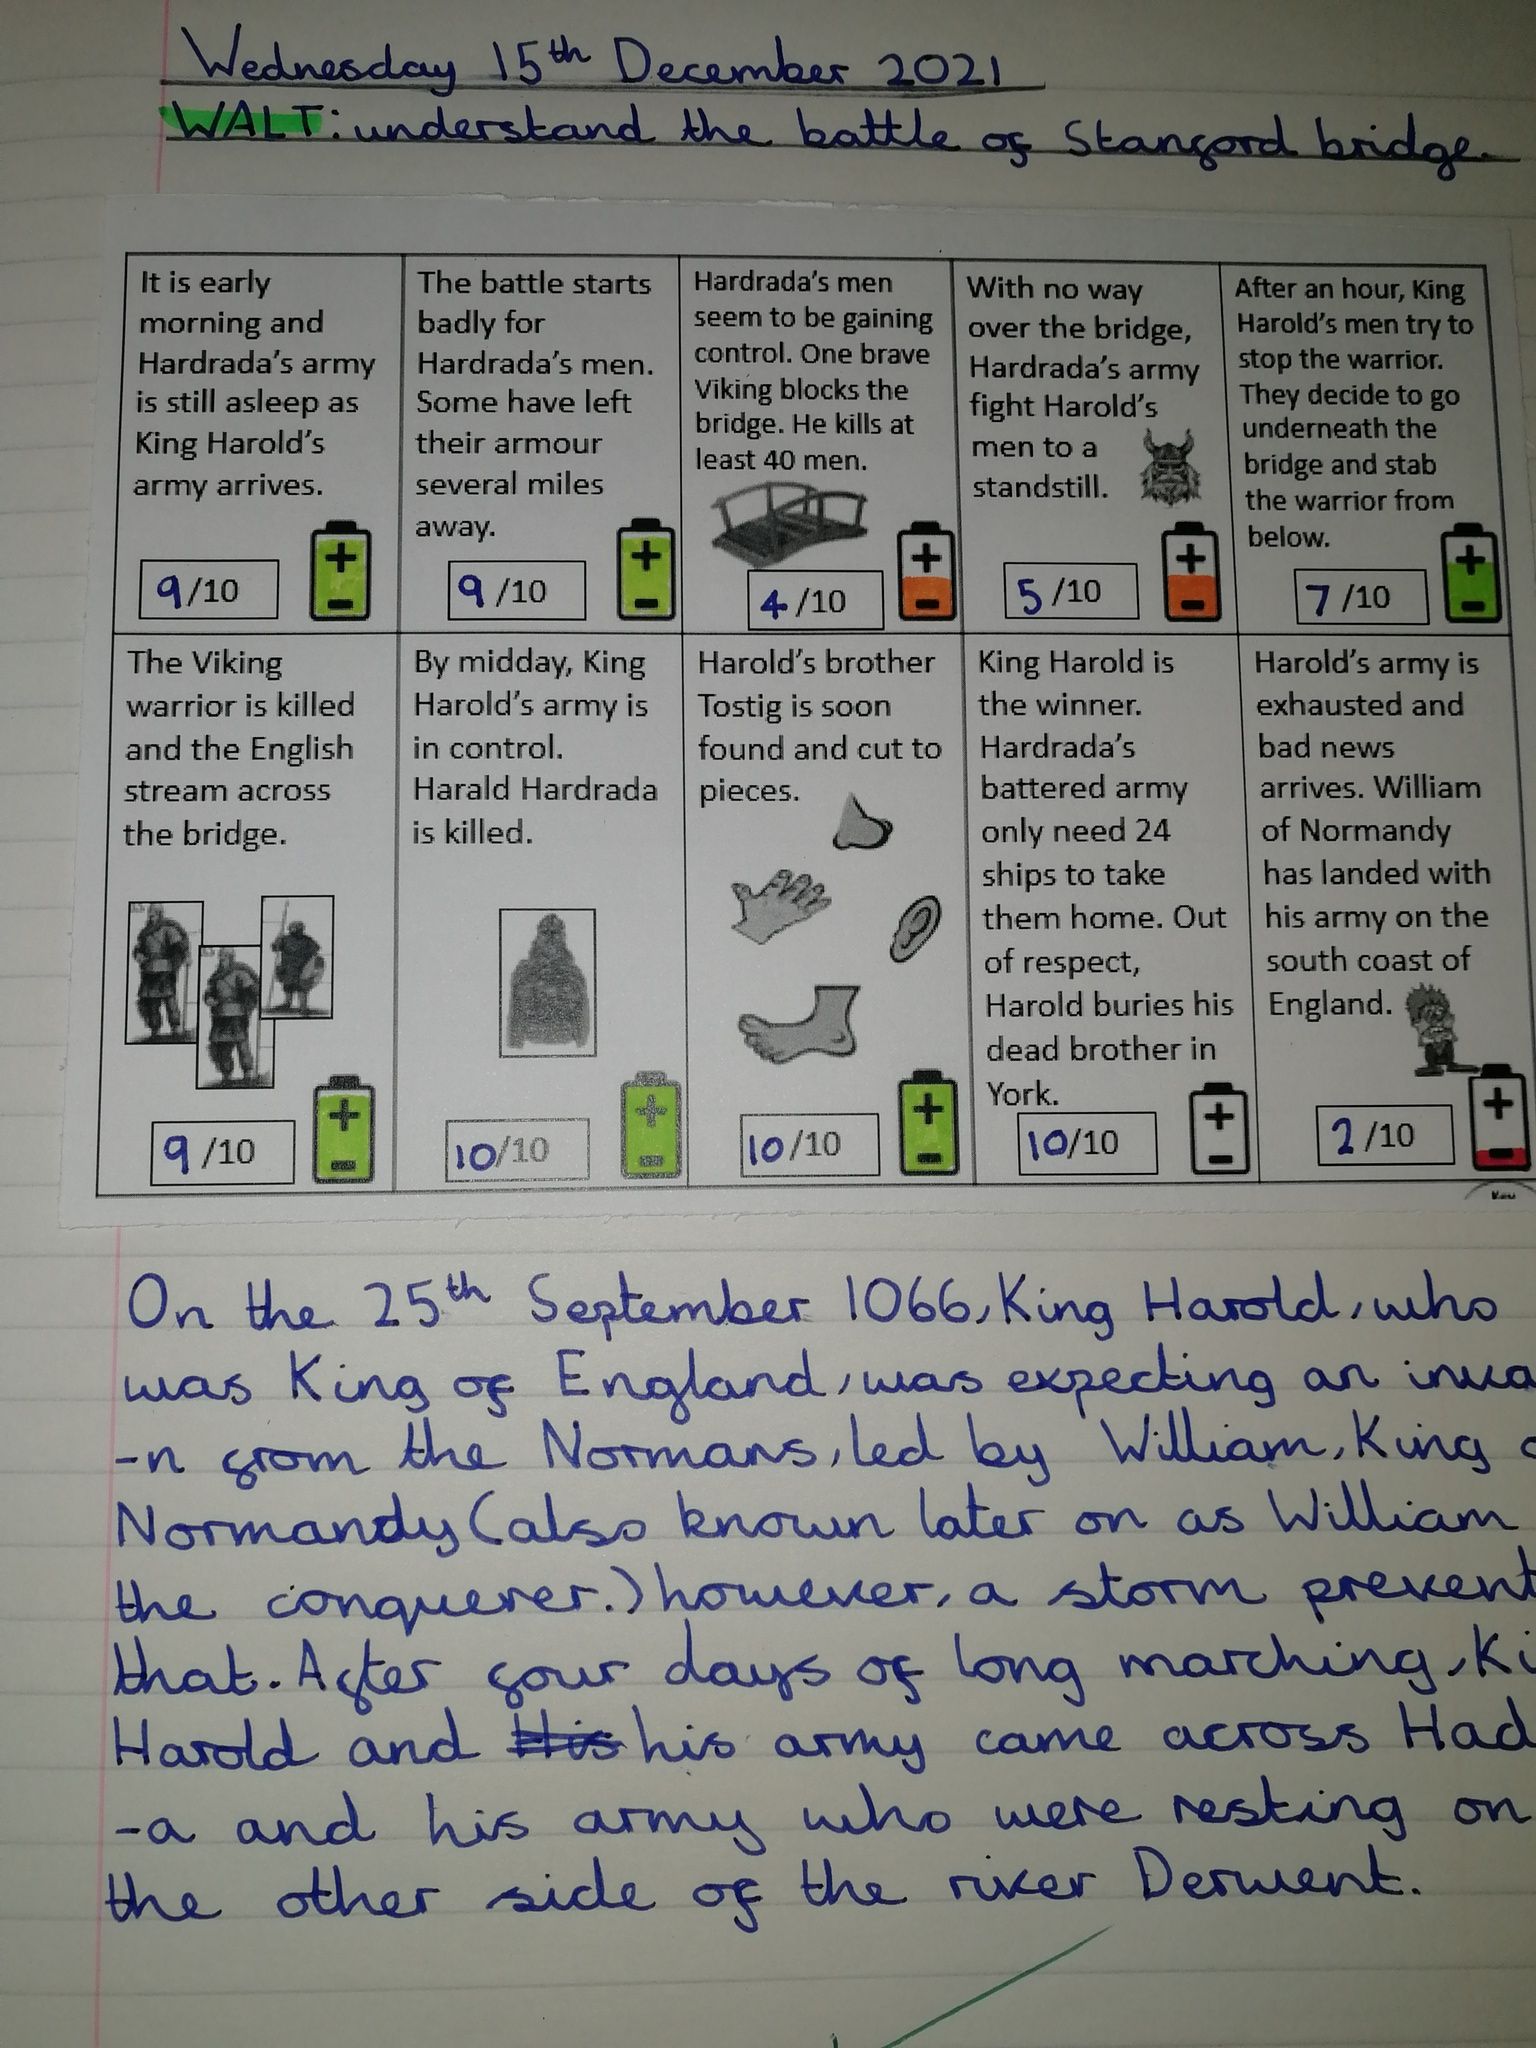 Wednesday 15th December 2021
WALT: understand the battle of Stamford bridge.
It is early
morning and
Hardrada's army
is still asleep as
King Harold's
army arrives.
9/10
The battle starts
badly for
Hardrada's men.
Some have left
their armour
several miles
away.
9/10
Hardrada's men
seem to be gaining
control. One brave
Viking blocks the
bridge. He kills at
least 40 men.
4/10
With no way
over the bridge,
Hardrada's army
fight Harold's
men to a
standstill.
5/10
After an hour, King
Harold's men try to
stop the warrior.
They decide to go
underneath the
bridge and stab
the warrior from
below.
7/10
The Viking
warrior is killed
and the English
stream across
the bridge.
9/10
By midday, King
Harold's army is
in control.
Harald Hardrada
is killed.
10/10
Harold's brother
Tostig is soon
found and cut to
pieces.
10/10
King Harold is
the winner.
Hardrada's
battered army
only need 24
ships to take
them home. Out
of respect,
Harold buries his
dead brother in
York.
10/10
Harold's army is
exhausted and
bad news
arrives. William
of Normandy
has landed with
his army on the
south coast of
England.
2/10
On the 25th September 1066, King Harold, who
was King of England, was expecting an inva
-n from the Normans, led by William, King
Normandy (also known later on as William
the conquerer.) however, a storm prevent
that. After four days of long marching, Ki
Harold and His his army came across Had
-a and his army who were resting on
the other side of the river Derwent.